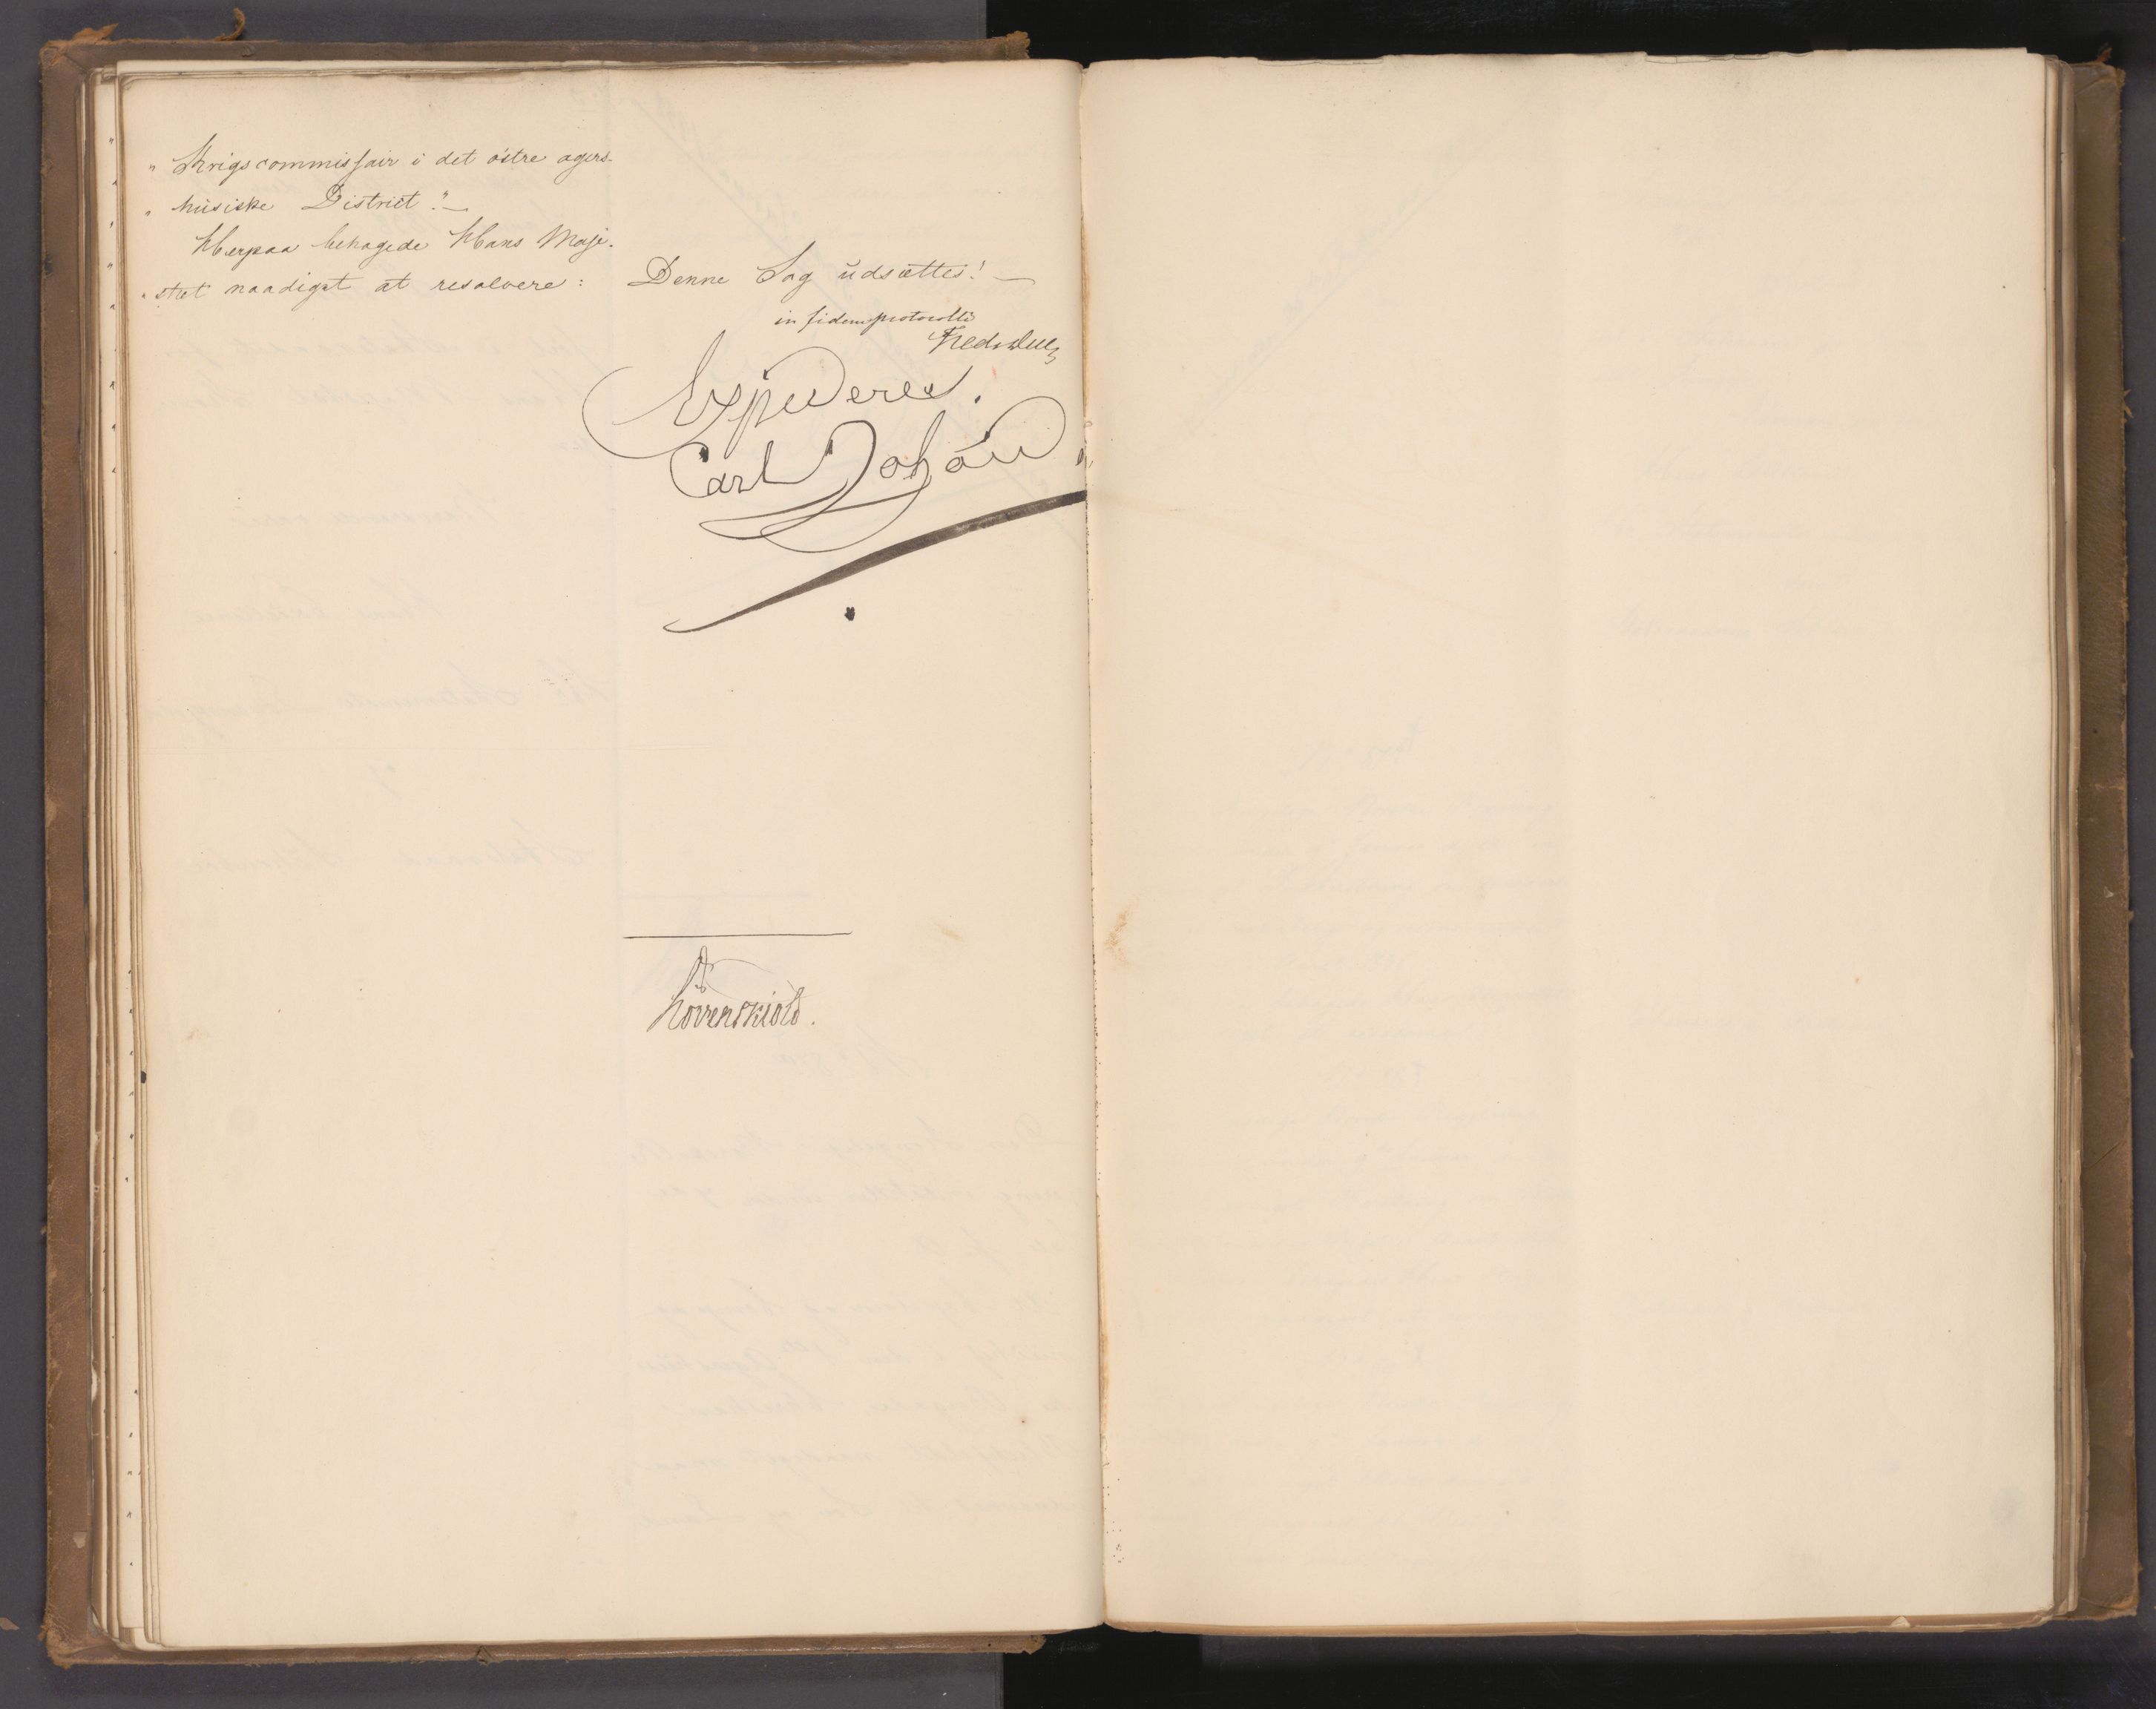 " Krigscommissair i det östre agers-
" huusiske District." —
Herpaa behagede Hans Maje-
stæt naadigst at resolvere:
Denne Sag udsættes! —
in fidem protocolli
Fredr Due
Expederes.
Carl Johan
Løvenskiold.